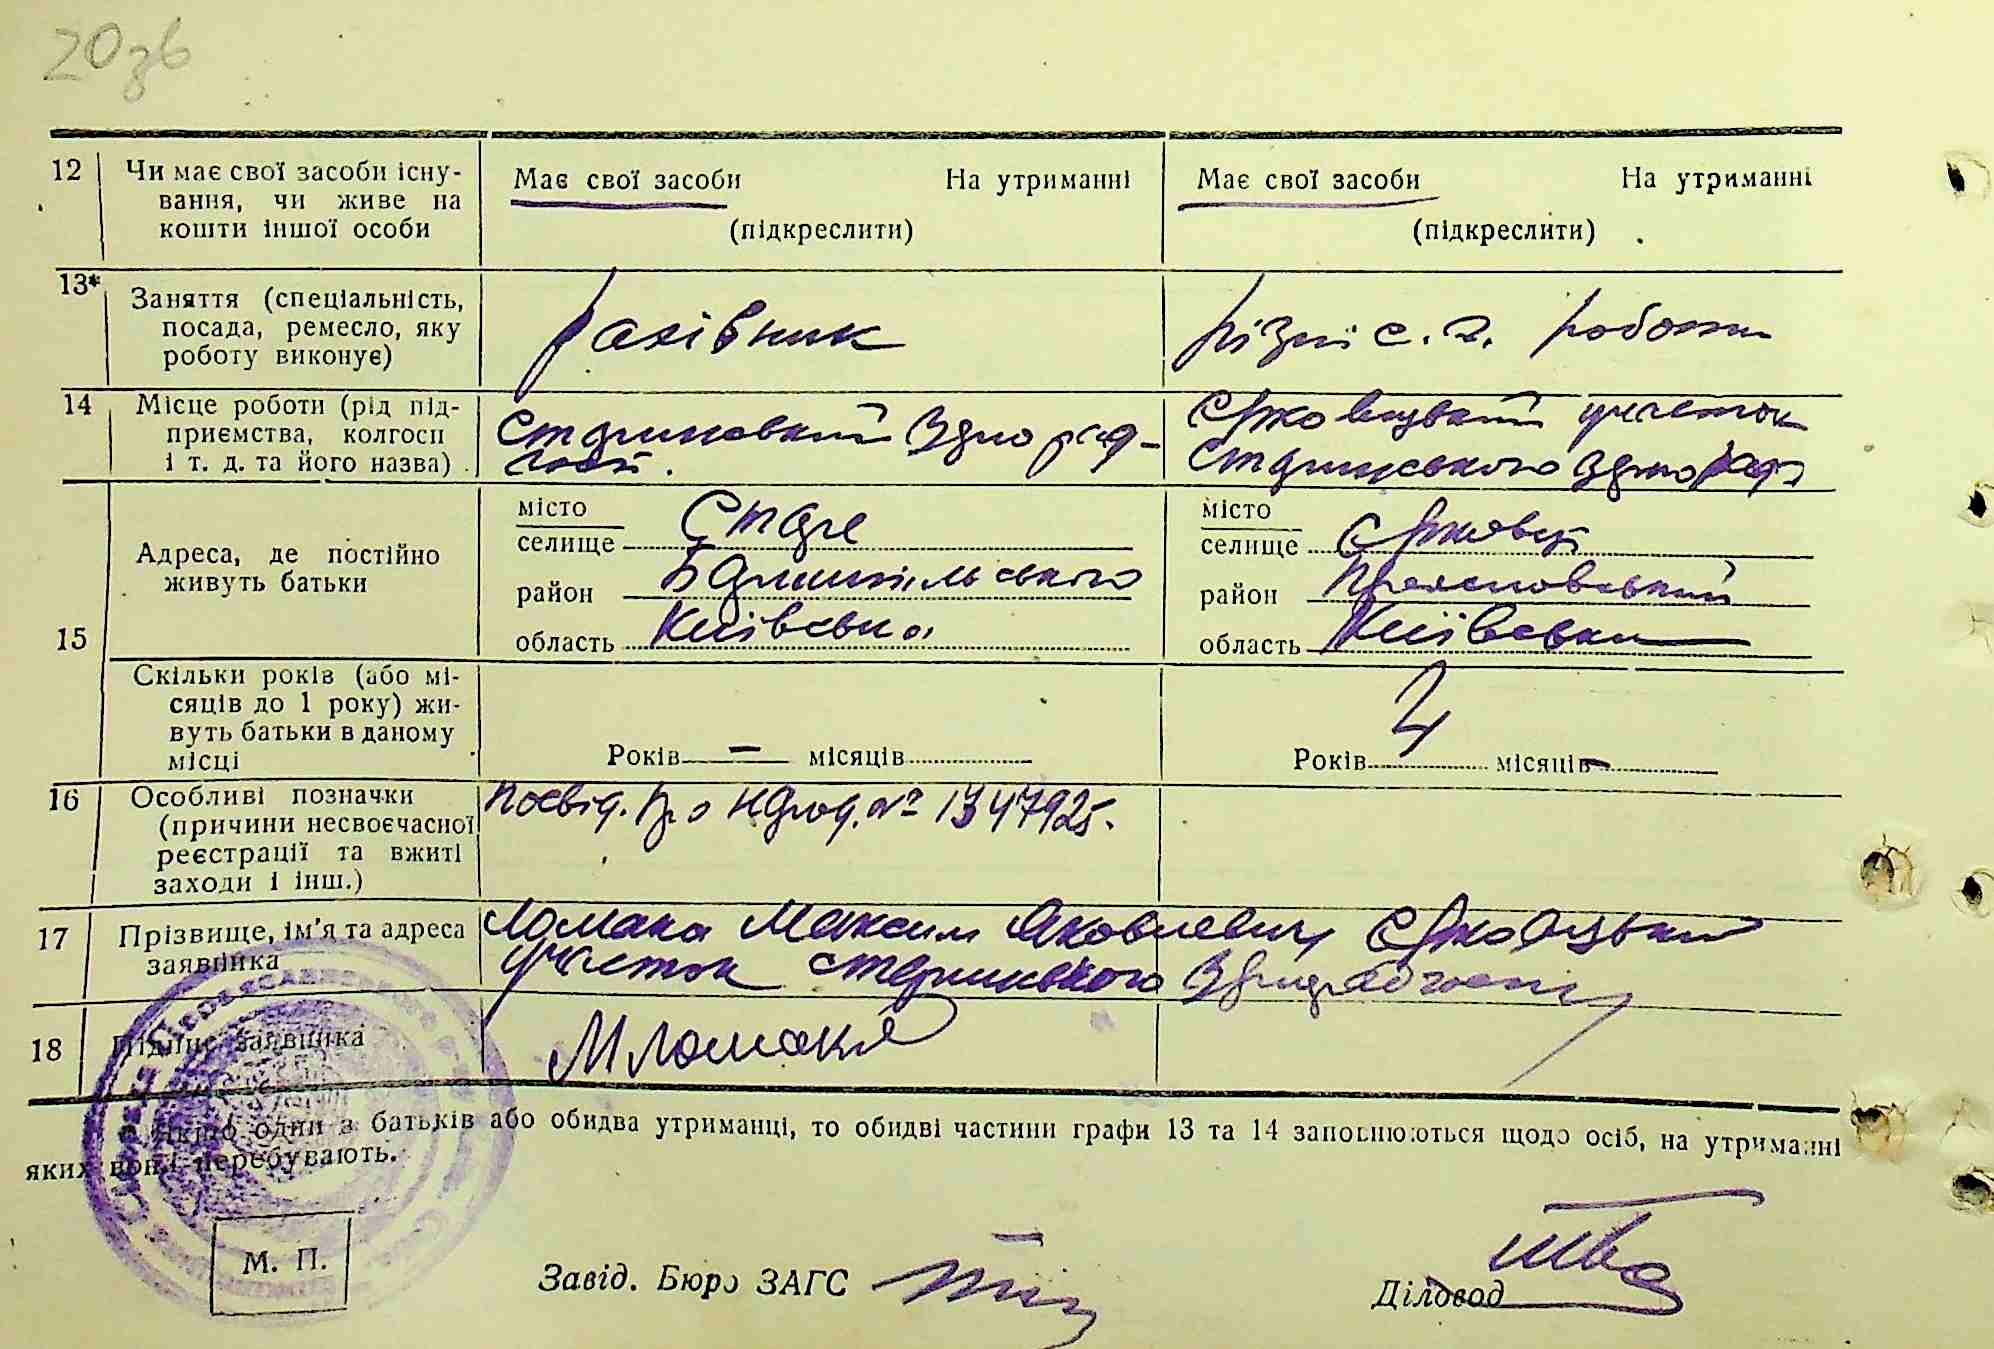 20зв
12 Чи має свої засоби існу-
вання, чи живе на
кошти іншої особи
Має свої засоби На утриманні
(підкреслити)
Має свої засоби На утриманні
(підкреслити)
13* Заняття (спеціальність,
посада, ремесло, яку
роботу виконує)
рахівник
різні с. г. роботи
14 Місце роботи (рід під-
приємства, колгосп
і т. д. та його назва)
Старинський
участок
Старинського
15 Адреса, де постійно
живуть батьки
місто
селище Старе
район Баришпільського
область Київська
місто
селище Єрковці
район
область Київська
Скільки років (або мі-
сяців до 1 року) жи-
вуть батьки в даному
місці
Років — місяців
Років 4 місяців -
16 Особливі позначки
(причини несвоєчасної
реєстрації та вжиті
заходи і інш.)
Посвід. Про народ. №
17 Прізвище, ім'я та адреса
заявника
Ломака Максим Яковлевич Єрковецький
участок Старинського
18 Підпис заявника
МЛомака
* Якщо один з батьків або обидва утриманці, то обидві частини графи 13 та 14 заповнюються щодо осіб, на утриманні
яких вони перебувають.
М. П.
Завід. Бюро ЗАГС
Діловод